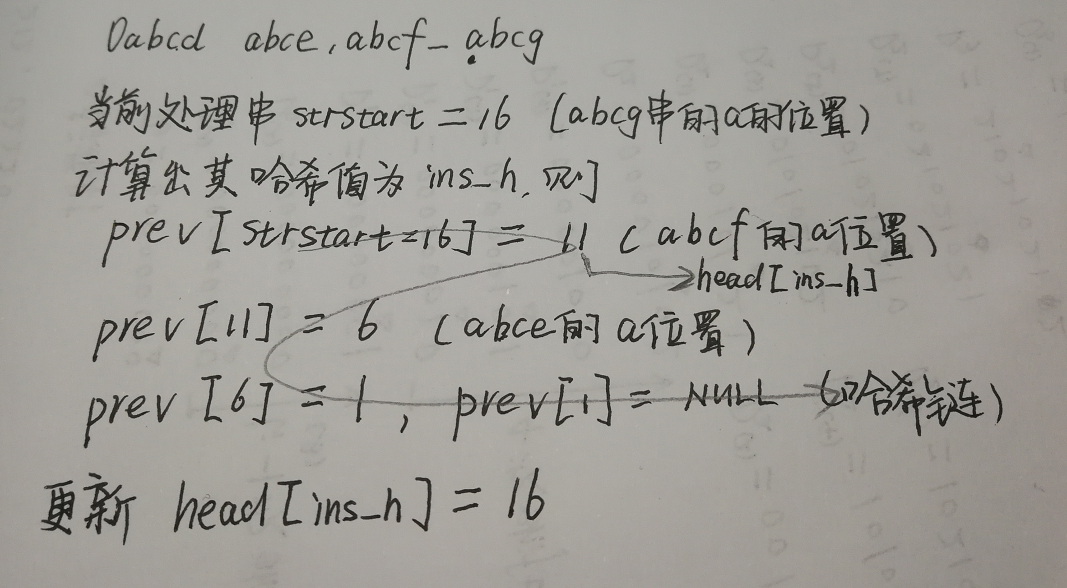 0abcd abce,abcf_abcg
当前处理串 strstart = 16 (abcg串的a的位置)
计算出其哈希值为 ins_h, 则
prev[strstart=16] = 11 (abcf的a位置)
head[ins_h]
prev[11] = 6 (abce的a位置)
prev[6] = 1, prev[1] = NULL (哈希链)
更新 head[ins_h] = 16